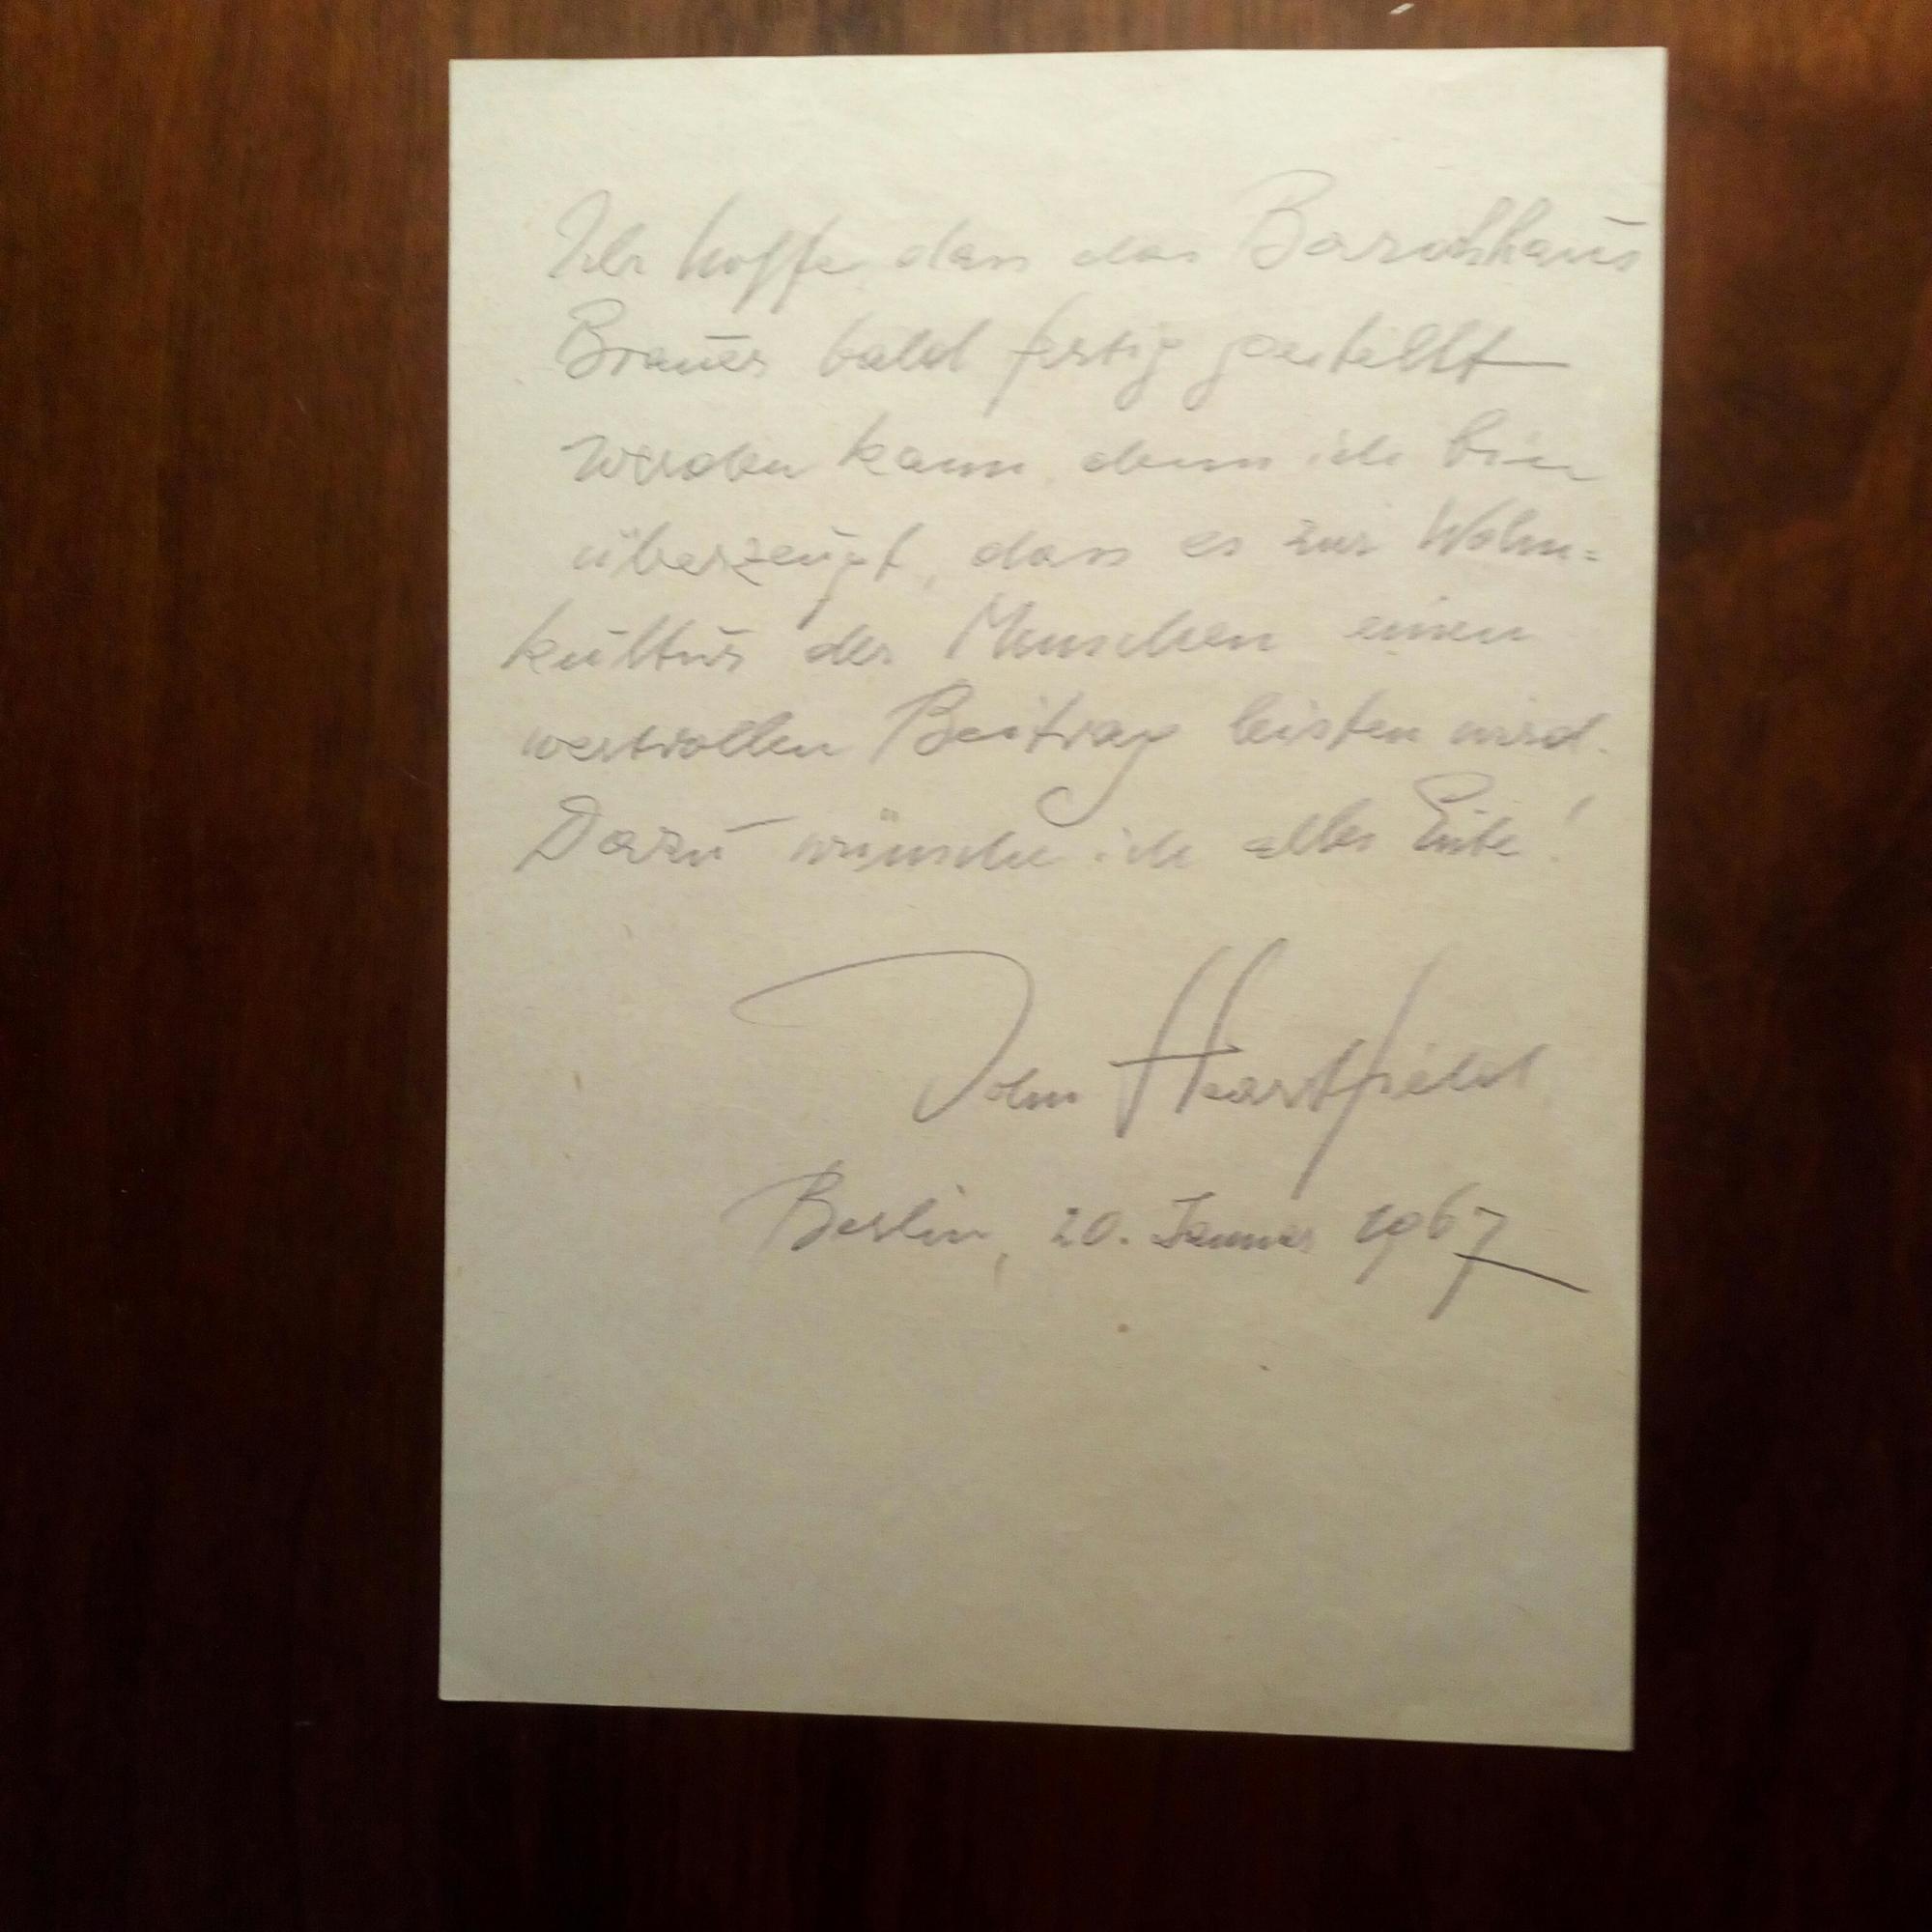 Ich hoffe dass das Baruthhaus
Brauer bald fertig gestellt
werden kann, denn ich bin
überzeugt, dass es zur Wohn=
kultur der Menschen einen
wertvollen Beitrag leisten wird.
Dazu wünsche ich alles Gute!
John Heartfield
Berlin, 20. Januar 1967